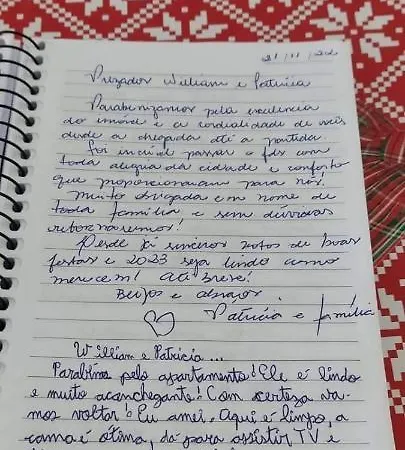 21/11/22
Prezados William e Patrícia
Parabenizamos pela excelencia
do imóvel e a cordialidade de vcês
desde a chegada até a partida.
Foi incrível passar o fds com
toda alegria da cidade e conforto
que proporcionaram para nós.
Muito obrigada em nome de
toda família e sem dúvidas
retornaremos!
Desde já sinceros votos de boas
festas e 2023 seja lindo como
merecem! Até breve!
Beijos e abraços.
Patrícia e família
William e Patrícia...
Parabéns pelo apartamento! Ele é lindo
e muito aconchegante! Com certeza va-
mos voltar! Eu amei. Aqui é limpo, a
cama é ótima, dá para assistir TV e